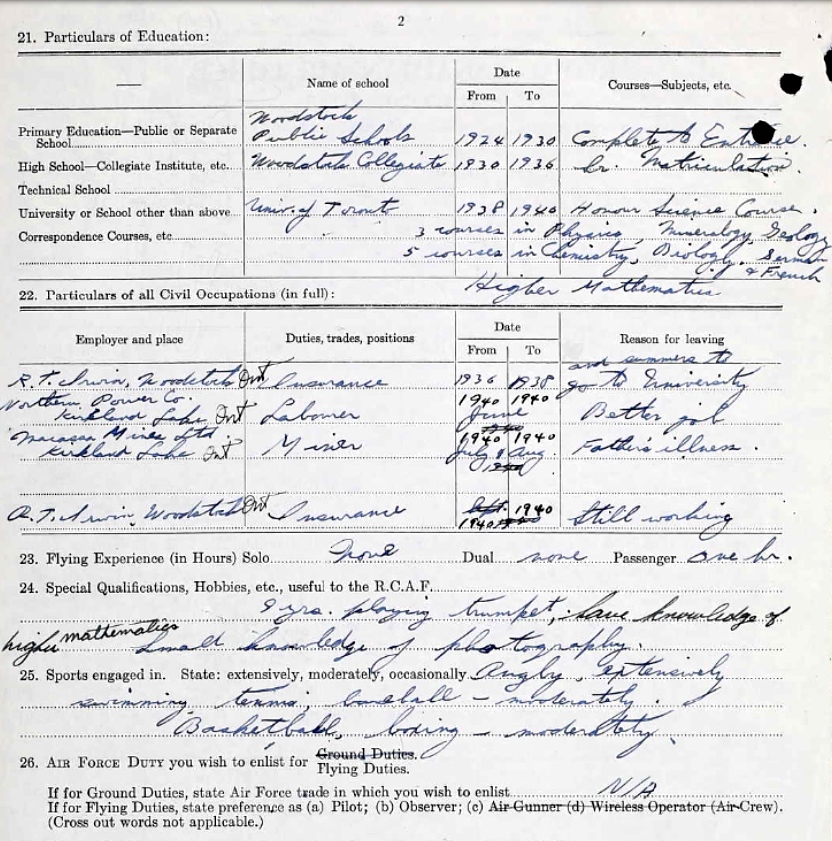 2
21. Particulars of Education:
Name of school
Date
From To
Courses—Subjects, etc.
Woodstock
Primary Education—Public or Separate School Public Schools 1924 1930 Complete to Entrance.
High School—Collegiate Institute, etc. Woodstock Collegiate 1930 1936 Sr. Matriculation.
Technical School
University or School other than above Univ. of Toronto 1938 1940 Honour Science Course.
Correspondence Courses, etc. 3 courses in Physics, Mineralogy, Geology
5 courses in Chemistry, Biology, German & French
Higher Mathematics
22. Particulars of all Civil Occupations (in full):
Employer and place
Duties, trades, positions
Date
From To
Reason for leaving
and summers to
R. T. Irwin, Woodstock Ont Insurance 1936 1938 go to University
Northern Power Co. 1940 1940
Kirkland Lake Ont Labourer June Better job
Macassa Mines Ltd. 1940 1940
Kirkland Lake Ont Miner July & Aug. Father's illness.
R. T. Irwin, Woodstock Ont Insurance Sept. 1940 Still working
1940
23. Flying Experience (in Hours) Solo None Dual none Passenger one hr.
24. Special Qualifications, Hobbies, etc., useful to the R.C.A.F.
9 yrs. playing trumpet, have knowledge of
higher mathematics small knowledge of photography.
25. Sports engaged in. State: extensively, moderately, occasionally Rugby, extensively
swimming, tennis, baseball – moderately.
Basketball, boxing – moderately.
26. AIR FORCE DUTY you wish to enlist for Ground Duties.
Flying Duties.
If for Ground Duties, state Air Force trade in which you wish to enlist N/A
If for Flying Duties, state preference as (a) Pilot; (b) Observer; (c) Air Gunner (d) Wireless Operator (Air Crew).
(Cross out words not applicable.)